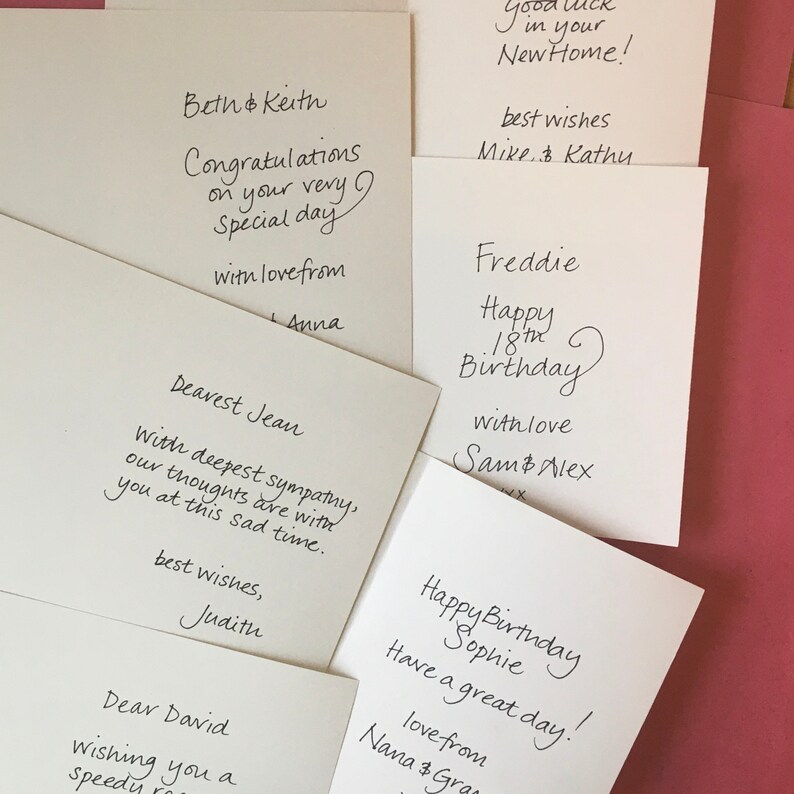 Good luck
in your
New Home!
best wishes
Mike & Kathy
Beth & Keith
Congratulations
on your very
special day
with love from
& Anna
Freddie
Happy
18th
Birthday
with love
Sam & Alex
xx
Dearest Jean
With deepest sympathy,
our thoughts are with
you at this sad time.
best wishes,
Judith
Happy Birthday
Sophie
Have a great day!
love from
Nana &
Dear David
wishing you a
speedy